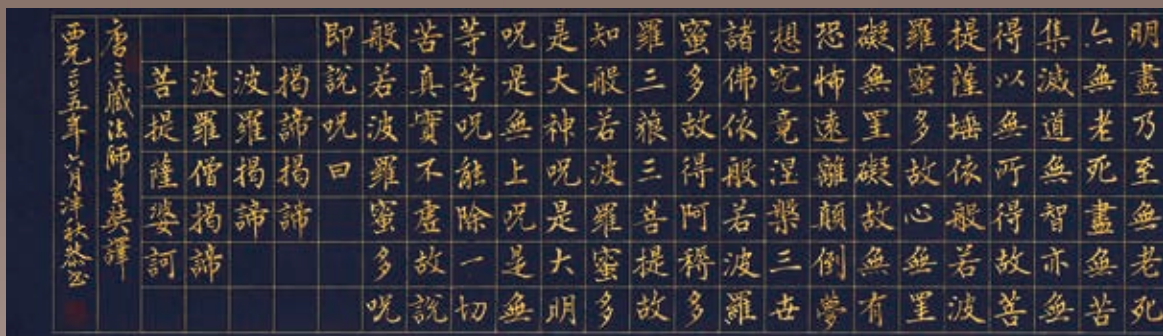 明盡乃至無老死
亦無老死盡無苦
集滅道無智亦無
得以無所得故菩
提薩埵依般若波
羅蜜多故心無罣
礙無罣礙故無有
恐怖遠離顛倒夢
想究竟涅槃三世
諸佛依般若波羅
蜜多故得阿耨多
羅三藐三菩提故
知般若波羅蜜多
是大神呪是大明
呪是無上呪是無
等等呪能除一切
苦真實不虛故說
般若波羅蜜多呪
即說呪曰
揭諦揭諦
波羅揭諦
波羅僧揭諦
菩提薩婆訶
唐三藏法師玄奘譯
西元年六月